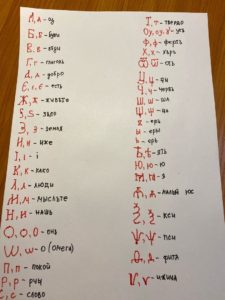 А, а - аз
Б, б - буки
В, в - вѣди
Г, г - глаголь
Д, д - добро
Є, є, є - есть
Ж, ж - живѣте
Ѕ, ѕ - зѣло
З, з - земля
И, и - иже
І, і - і
К, к - како
Л, л - люди
М, м - мыслѣте
Н, н - нашъ
О, о, о - онъ
Ѡ, ѡ - о (омега)
П, п - покой
Р, р - рцы
С, с - слово
Т, т - твердо
Оу, оу, ꙋ - укъ
Ф, ф - фертъ
Х, х - хѣръ
Ѿ, ѿ - отъ
Ц, ц - цы
Ч, ч - червь
Ш, ш - ша
Щ, щ - ща
ъ - еръ
ы - еры
ь - ерь
Ѣ, ѣ - ять
Ю, ю - ю
Ѧ, ѧ - малый юс
Ѯ, ѯ - кси
Ѱ, ѱ - пси
Ѳ, ѳ - фита
Ѵ, ѵ - ижица